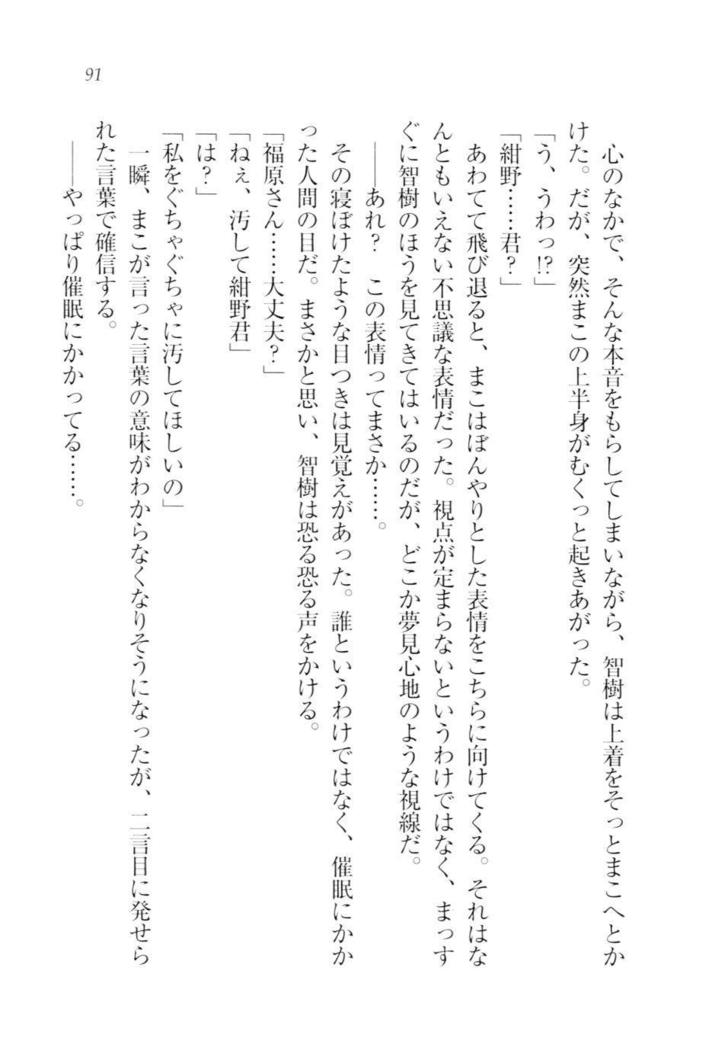 91
心のなかで、そんな本音をもらしてしまいながら、智樹は上着をそっとまこへとか
けた。だが、突然まこの上半身がむくっと起きあがった。
「う、うわっ!?」
「紺野……君？」
あわてて飛び退ると、まこはぼんやりとした表情をこちらに向けてくる。それはな
んともいえない不思議な表情だった。視点が定まらないというわけではなく、まっす
ぐに智樹のほうを見てきてはいるのだが、どこか夢見心地のような視線だ。
――あれ？　この表情ってまさか……。
その寝ぼけたような目つきは見覚えがあった。誰というわけではなく、催眠にかか
った人間の目だ。まさかと思い、智樹は恐る恐る声をかける。
「福原さん……大丈夫？」
「ねぇ、汚して紺野君」
「は？」
「私をぐちゃぐちゃに汚してほしいの」
一瞬、まこが言った言葉の意味がわからなくなりそうになったが、二言目に発せら
れた言葉で確信する。
――やっぱり催眠にかかってる……。